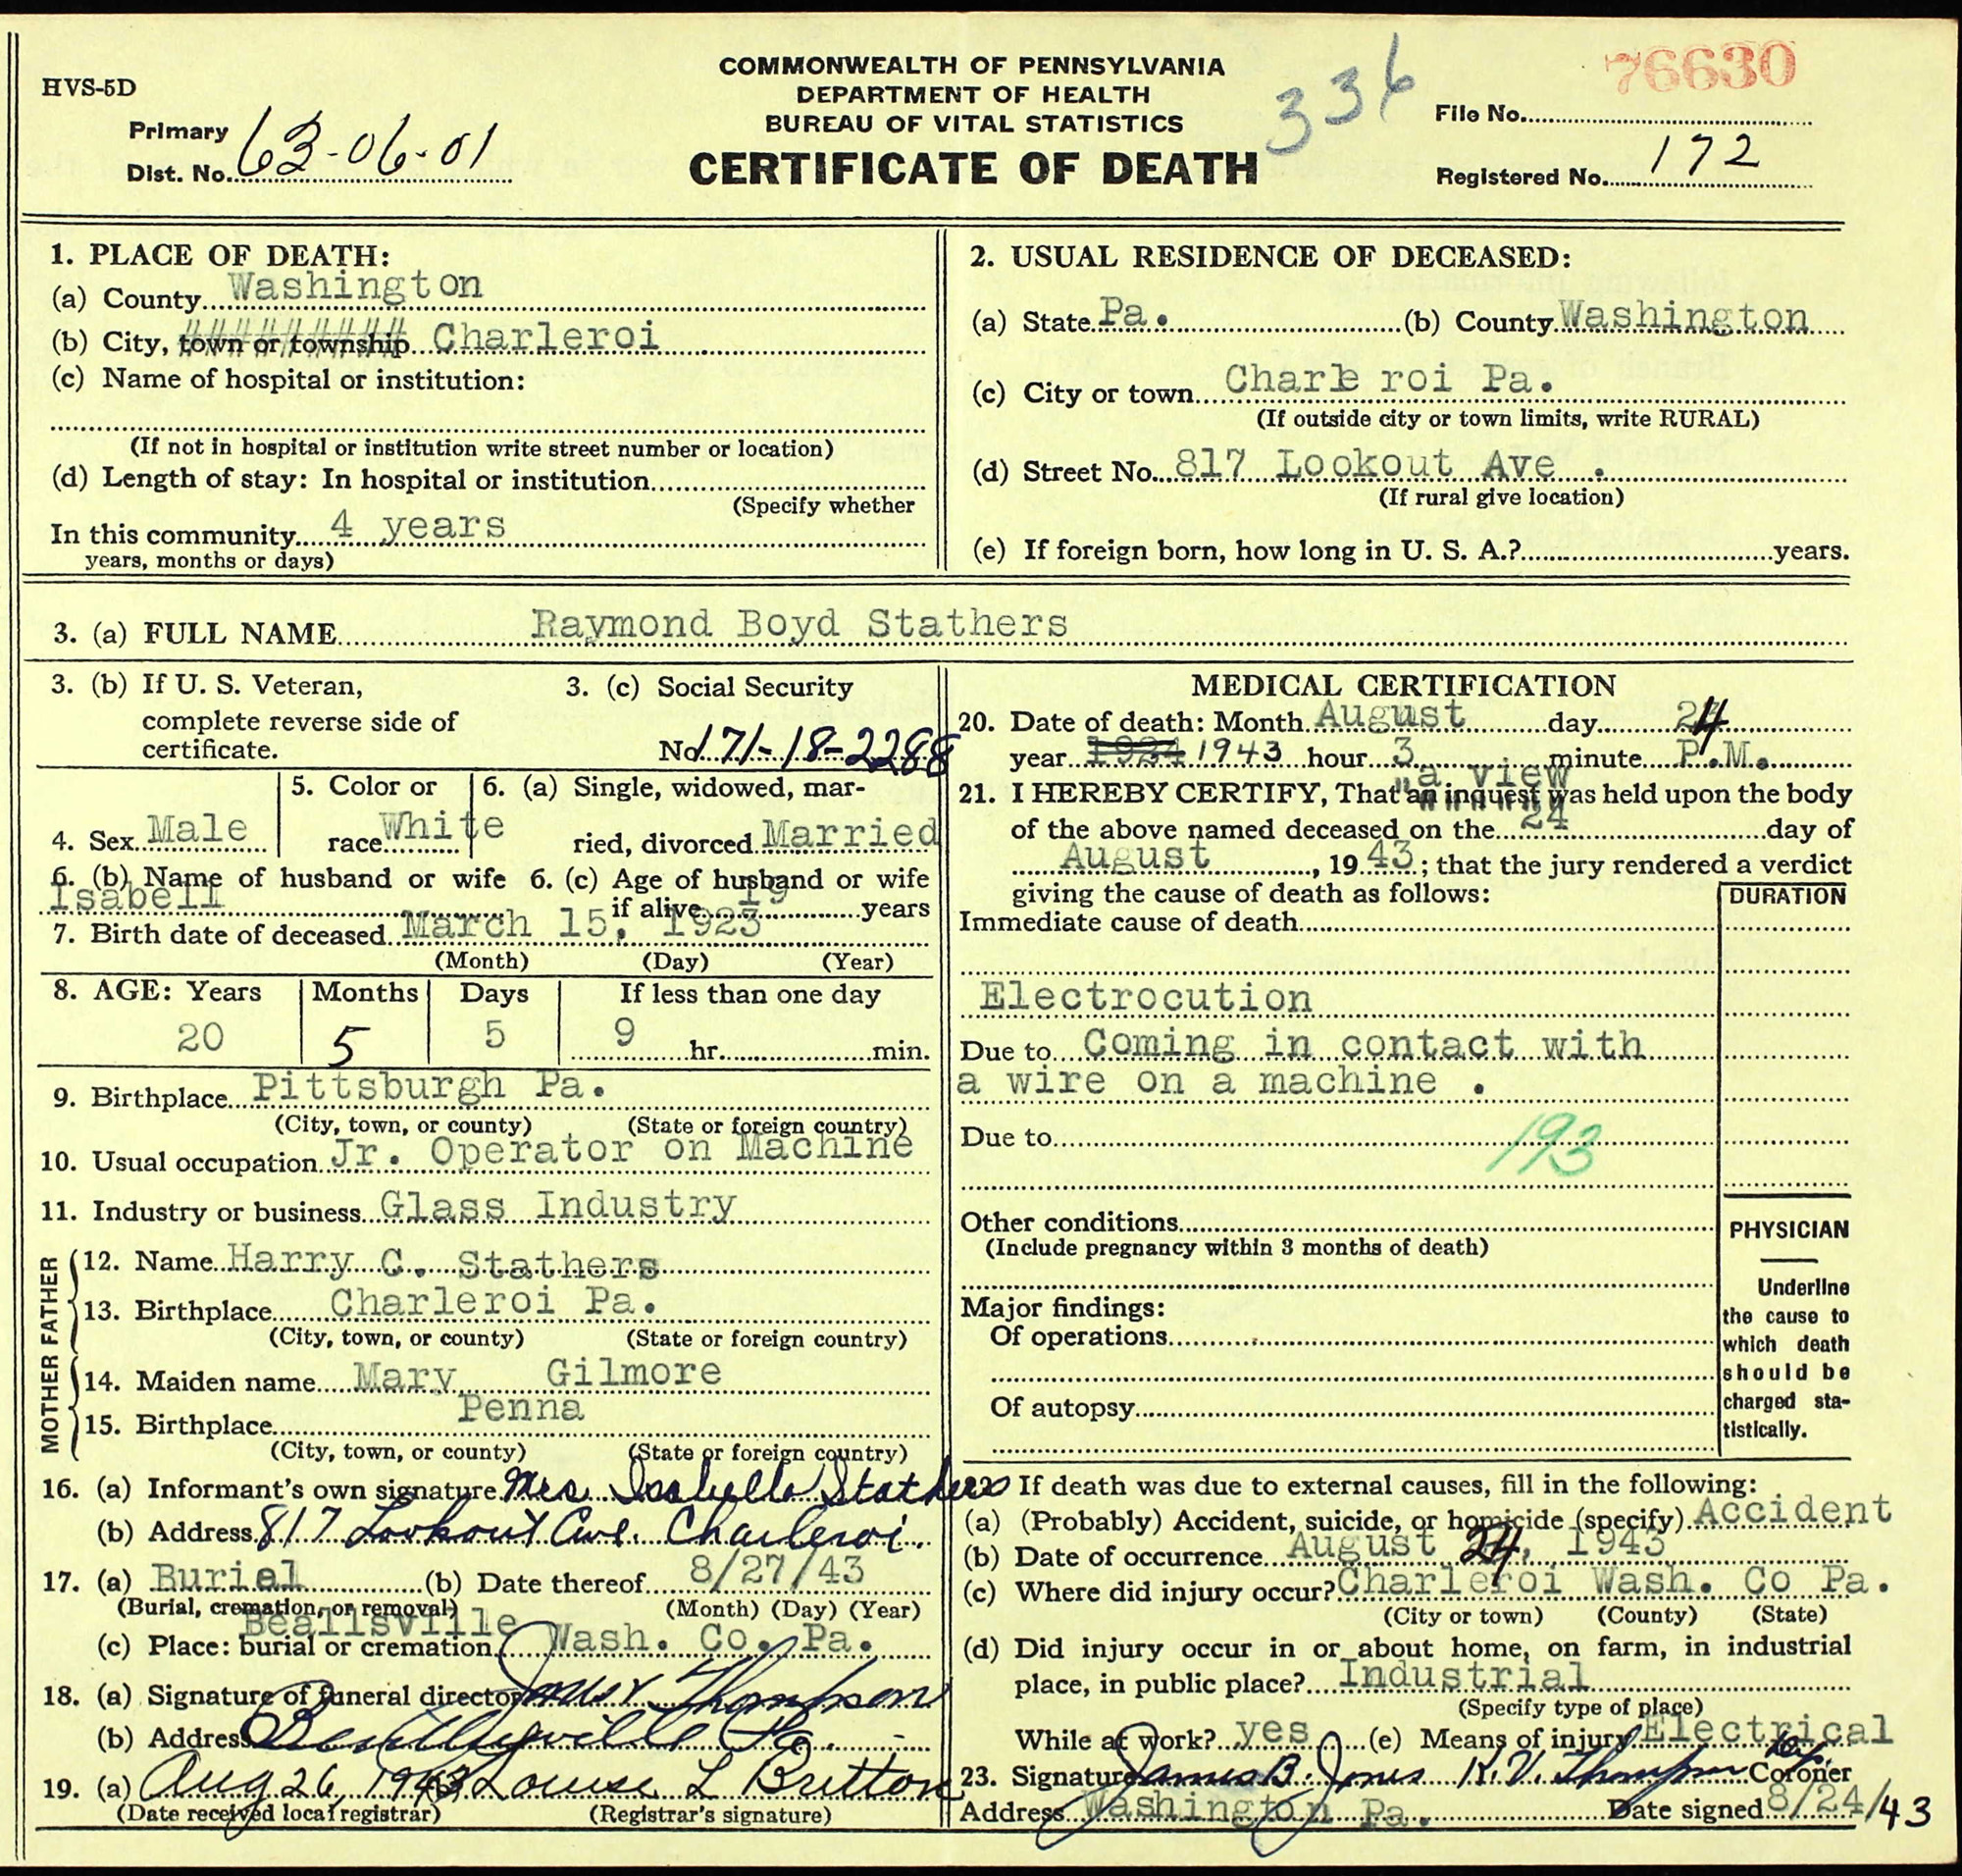 HVS-5D
COMMONWEALTH OF PENNSYLVANIA
DEPARTMENT OF HEALTH
BUREAU OF VITAL STATISTICS
CERTIFICATE OF DEATH
336
76630
Primary
Dist. No. 63-06-01
File No.
Registered No. 172
1. PLACE OF DEATH:
(a) County Washington
(b) City, town or township Charleroi
(c) Name of hospital or institution:
(If not in hospital or institution write street number or location)
(d) Length of stay: In hospital or institution
(Specify whether
In this community 4 years
years, months or days)
2. USUAL RESIDENCE OF DECEASED:
(a) State Pa. (b) County Washington
(c) City or town Charle roi Pa.
(If outside city or town limits, write RURAL)
(d) Street No. 817 Lookout Ave .
(If rural give location)
(e) If foreign born, how long in U. S. A.? years.
3. (a) FULL NAME Raymond Boyd Stathers
3. (b) If U. S. Veteran,
complete reverse side of
certificate.
3. (c) Social Security
No. 171-18-2288
4. Sex Male
5. Color or
race White
6. (a) Single, widowed, mar-
ried, divorced Married
6. (b) Name of husband or wife
Isabell
6. (c) Age of husband or wife
if alive 19 years
7. Birth date of deceased March 15, 1923
(Month) (Day) (Year)
8. AGE: Years Months Days If less than one day
20 5 5 9 hr. min.
9. Birthplace Pittsburgh Pa.
(City, town, or county) (State or foreign country)
10. Usual occupation Jr. Operator on Machine
11. Industry or business Glass Industry
FATHER
12. Name Harry C. Stathers
13. Birthplace Charleroi Pa.
(City, town, or county) (State or foreign country)
MOTHER
14. Maiden name Mary Gilmore
15. Birthplace Penna
(City, town, or county) (State or foreign country)
16. (a) Informant's own signature Mrs Isabelle Stathers
(b) Address 817 Lookout Ave. Charleroi.
17. (a) Burial (b) Date thereof 8/27/43
(Burial, cremation, or removal) (Month) (Day) (Year)
Beallsville
(c) Place: burial or cremation Wash. Co. Pa.
18. (a) Signature of funeral director Thompson
(b) Address Bentleyville Pa.
19. (a) Aug 26, 1943 Louise L Britton
(Date received local registrar) (Registrar's signature)
MEDICAL CERTIFICATION
20. Date of death: Month August day 24
year 1924 1943 hour 3 minute P.M.
"a view
21. I HEREBY CERTIFY, That an inquest was held upon the body
of the above named deceased on the 24 day of
August, 1943; that the jury rendered a verdict
giving the cause of death as follows:
DURATION
Immediate cause of death
Electrocution
Due to Coming in contact with
a wire on a machine .
Due to
193
Other conditions
(Include pregnancy within 3 months of death)
Major findings:
Of operations
Of autopsy
PHYSICIAN
Underline
the cause to
which death
should be
charged sta-
tistically.
22. If death was due to external causes, fill in the following:
(a) (Probably) Accident, suicide, or homicide (specify) Accident
(b) Date of occurrence August 24, 1943
(c) Where did injury occur? Charleroi Wash. Co Pa.
(City or town) (County) (State)
(d) Did injury occur in or about home, on farm, in industrial
place, in public place? Industrial
(Specify type of place)
While at work? yes (e) Means of injury Electrical
23. Signature James B. Jones K. V. Thompson Dep. Coroner
Address Washington Pa. Date signed 8/24/43